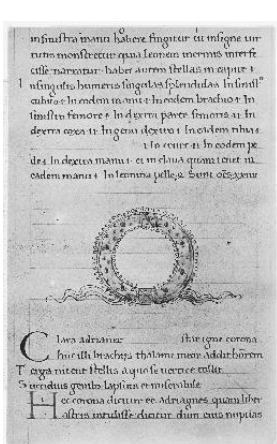 insinistra manu habere fingitur ut insigne uir
tutis monstretur quia leonem inermis interfe
cisse narratur. habet autem stellas in capite i
insingulis humeris singulas splendidas In sinist
cubito i In eadem manu i In eodem brachio i In
sinistro femore i In dextra parte femoris ii In
dextra coxa ii In genu dextro i In eadem tibia i
In crure ii In eodem pe
de i In dextra manu i et in claua quam tenet in
eadem manu i In leonina pelle Sunt oms xxuii
Clara adrianae stat igne corona
huic illi brachijs thalami mear addit honorem
Terga nitent stellis a quo se uertice tollit
Succiduis genibus lapsum et miserabile
Hec corona dicitur ee adriagnes quam liber
astris intulisse dicitur dum eius nuptias